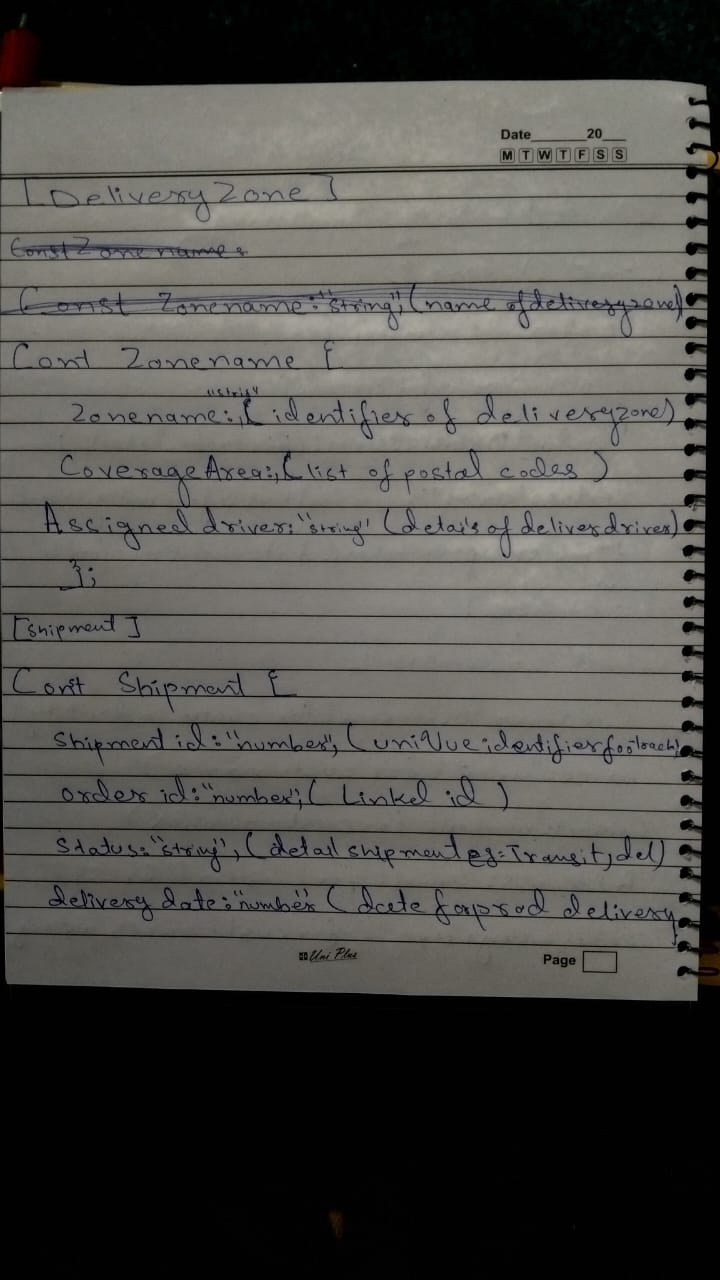 Date 20
M T W T F S S
[Delivery Zone]
Const Zone name:
Const Zonename: "string", (name of deliveryzone)
Cont Zonename {
"string"
Zonename:, ( identifier of deliveryzone)
Coverage Area:, ( list of postal codes )
Assigned driver: "string" (details of deliver driver)
};
[shipment]
Const Shipment {
Shipment id: "number", (uniVue identifier for track)
order id: "number", ( Linked id )
Status: "string", (detail shipment eg: Transit, del)
delivery date: "number" ( date for prod delivery
Uni Plus
Page